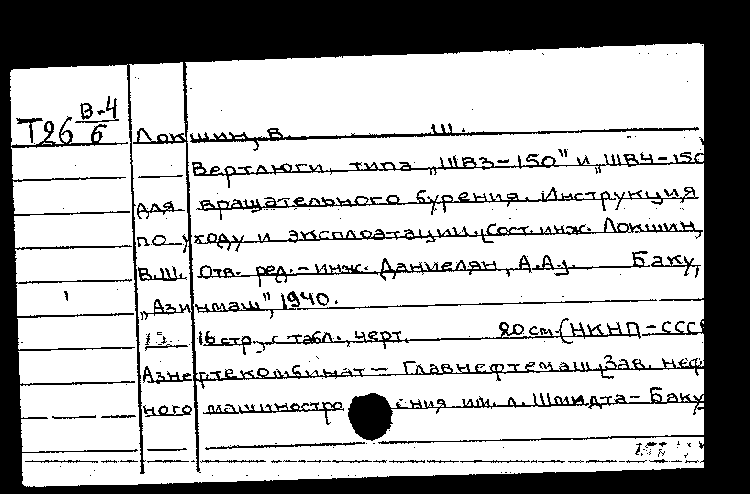 Т26 В-4/6 Локшин, В. Ш.
Вертлюги, типа „ШВЗ-150" и „ШВЧ-150
для вращательного бурения. Инструкция
по уходу и эксплоатации. [Сост. инж. Локшин,
В.Ш. Отв. ред. - инж. Даниелян, А.А.]. Баку,
„Азинмаш", 1940.
15. 16 стр., с табл., черт. 20 см. (НКНП-СССР
Азнефтекомбинат - Главнефтемаш. Зав. неф
ного машиностро ения им. л. Шмидта - Баку